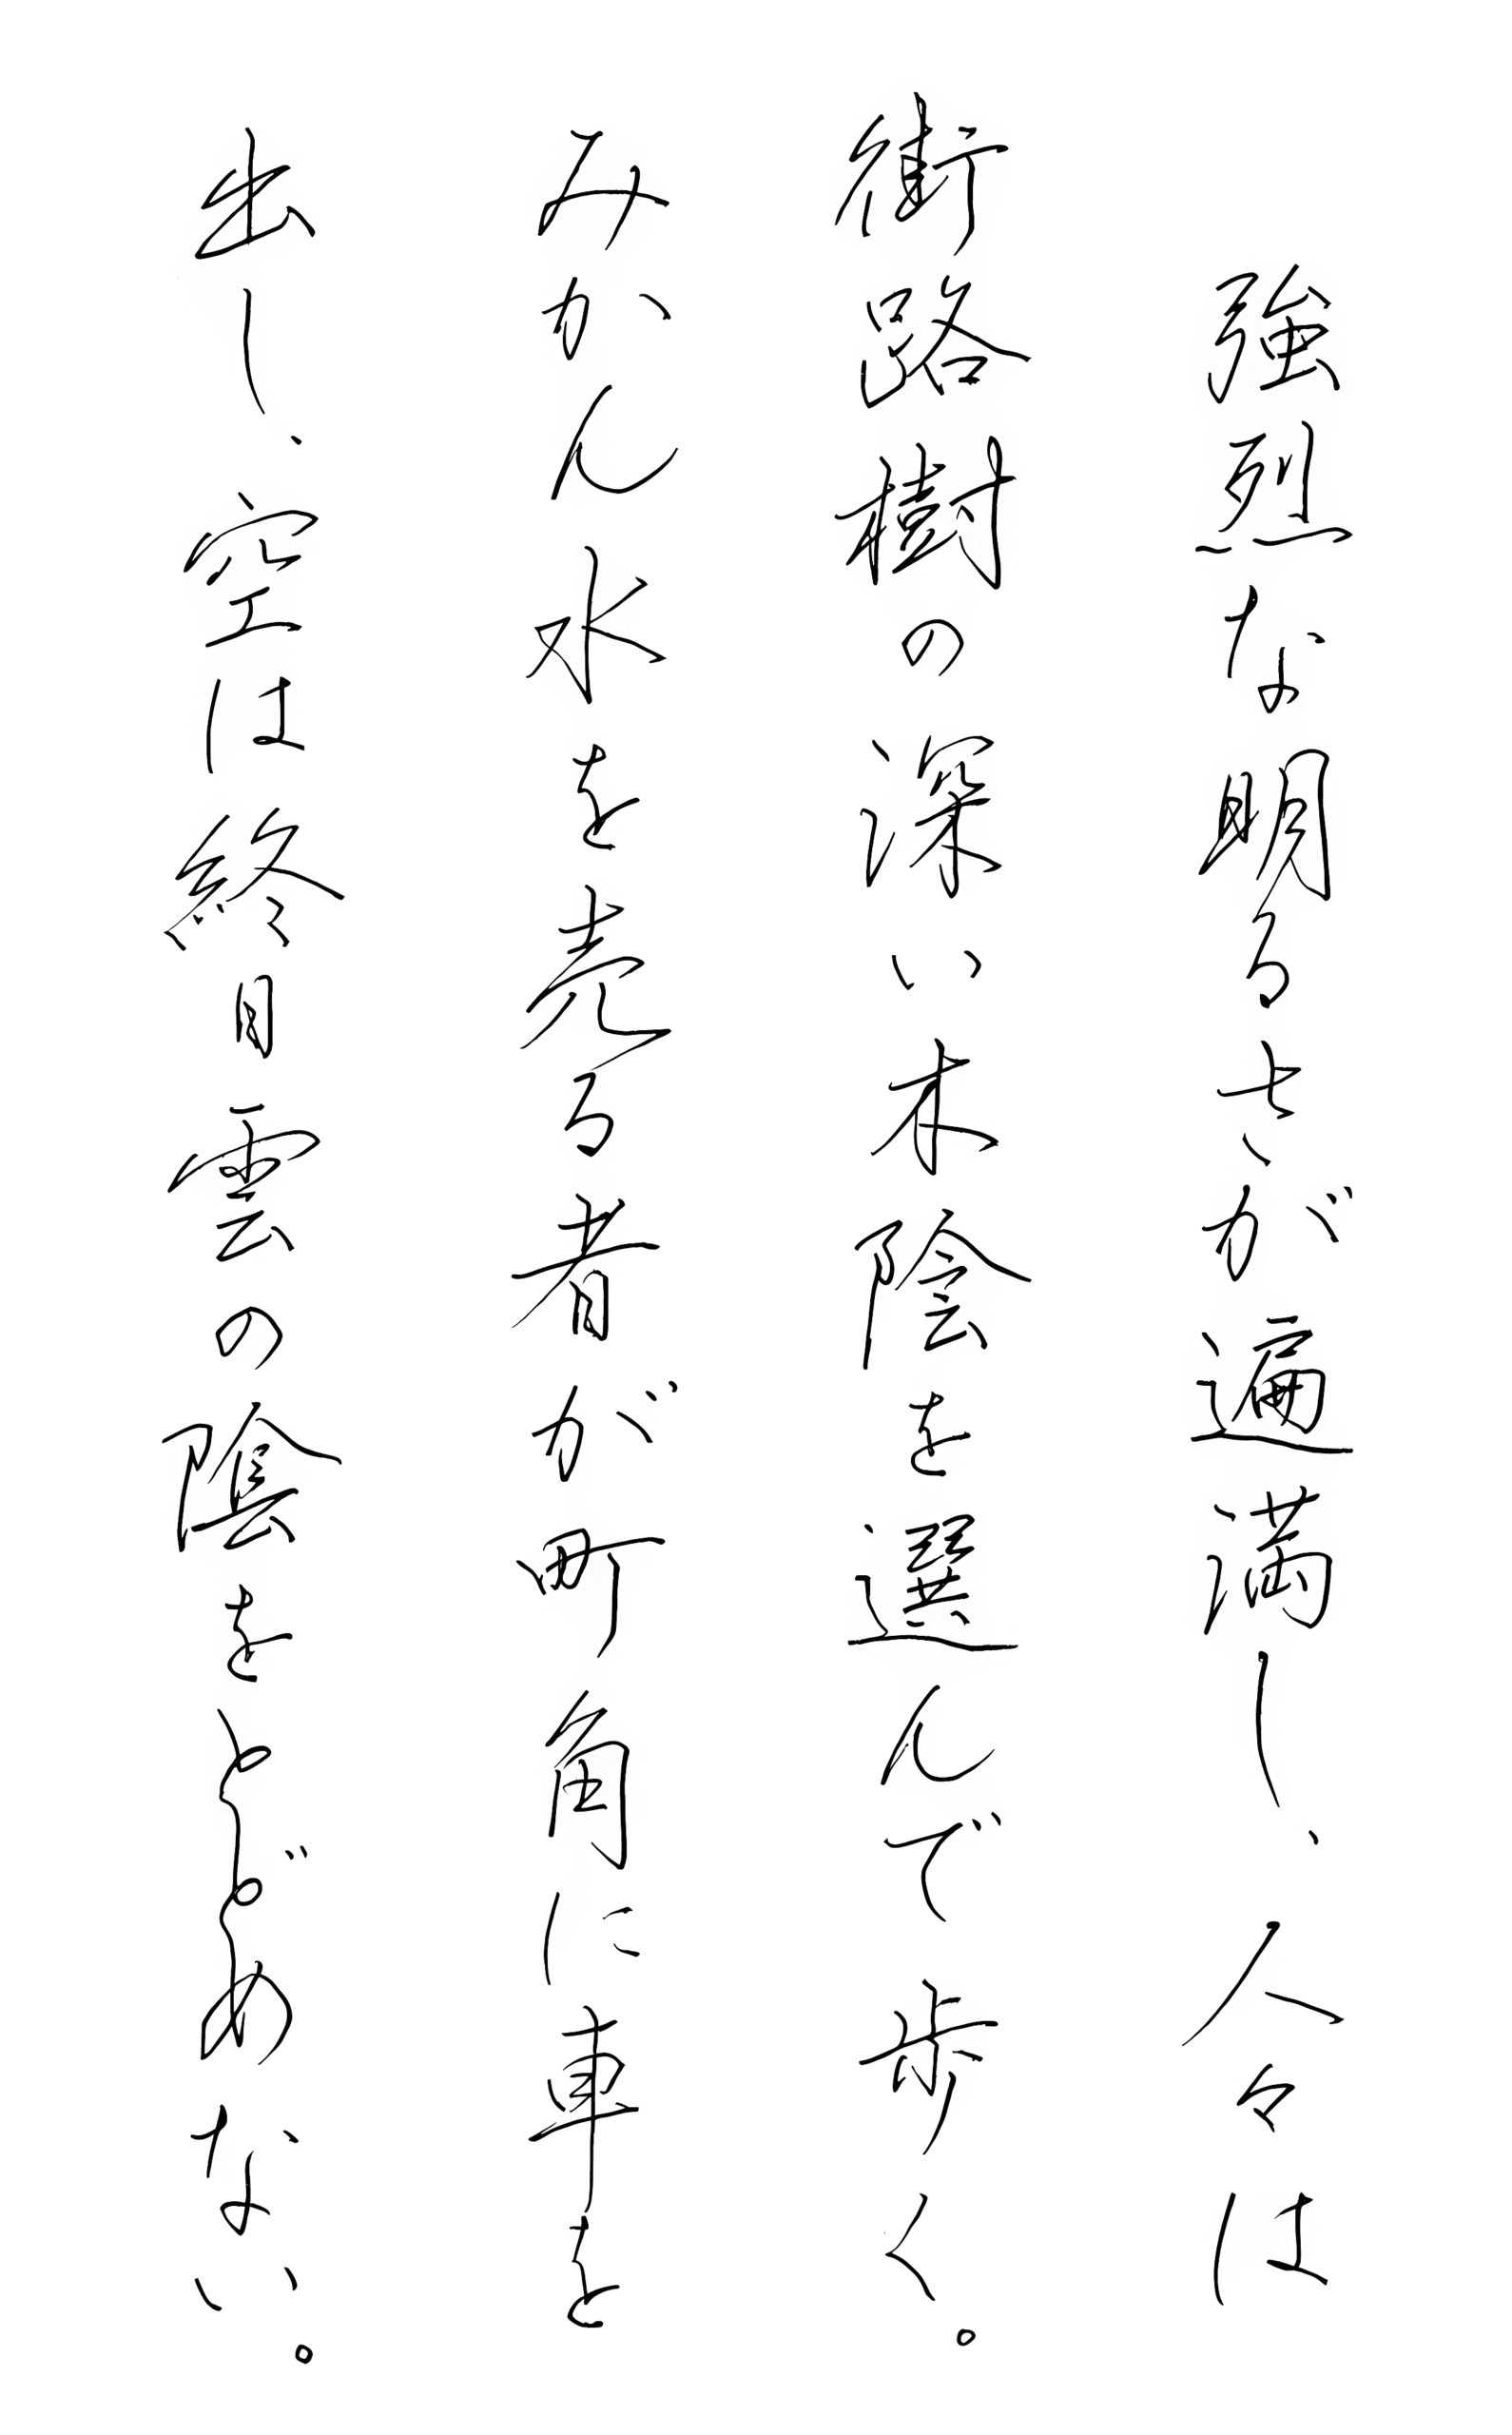 強烈な明るさが遍満し、人々は
街路樹の深い木陰を選んで歩く。
みかん水を売る者が町角に車を
出し、空は終日雲の陰をとどめない。